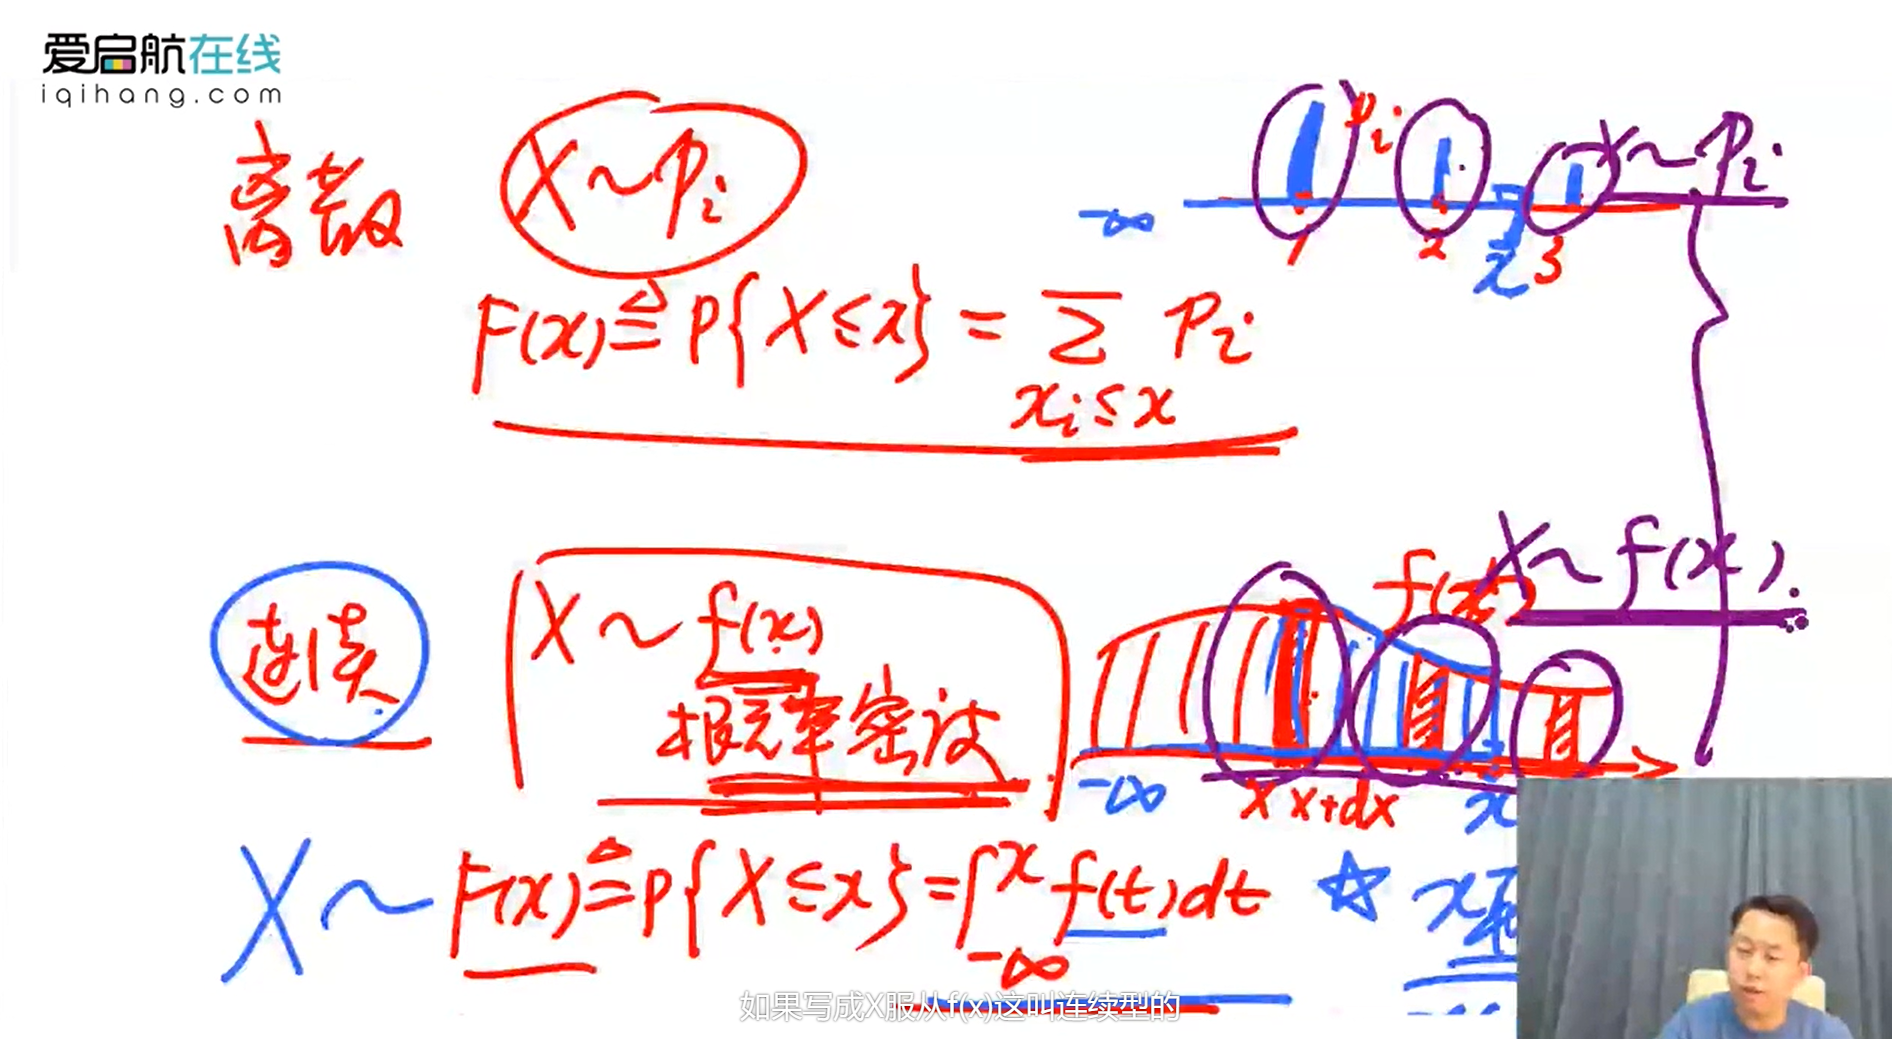 爱启航在线
iqihang.com
离散
X~Pi
Pi
X~Pi
-∞
1
2
x
3
F(x)≜P{X≤x}=∑Pi
xi≤x
连续
X~f(x)
概率密度
f(x)
X~f(x).
-∞
x
x+dx
x
X~F(x)≜P{X≤x}=∫_{-∞}^{x}f(t)dt
☆
如果写成X服从f(x)这叫连续型的